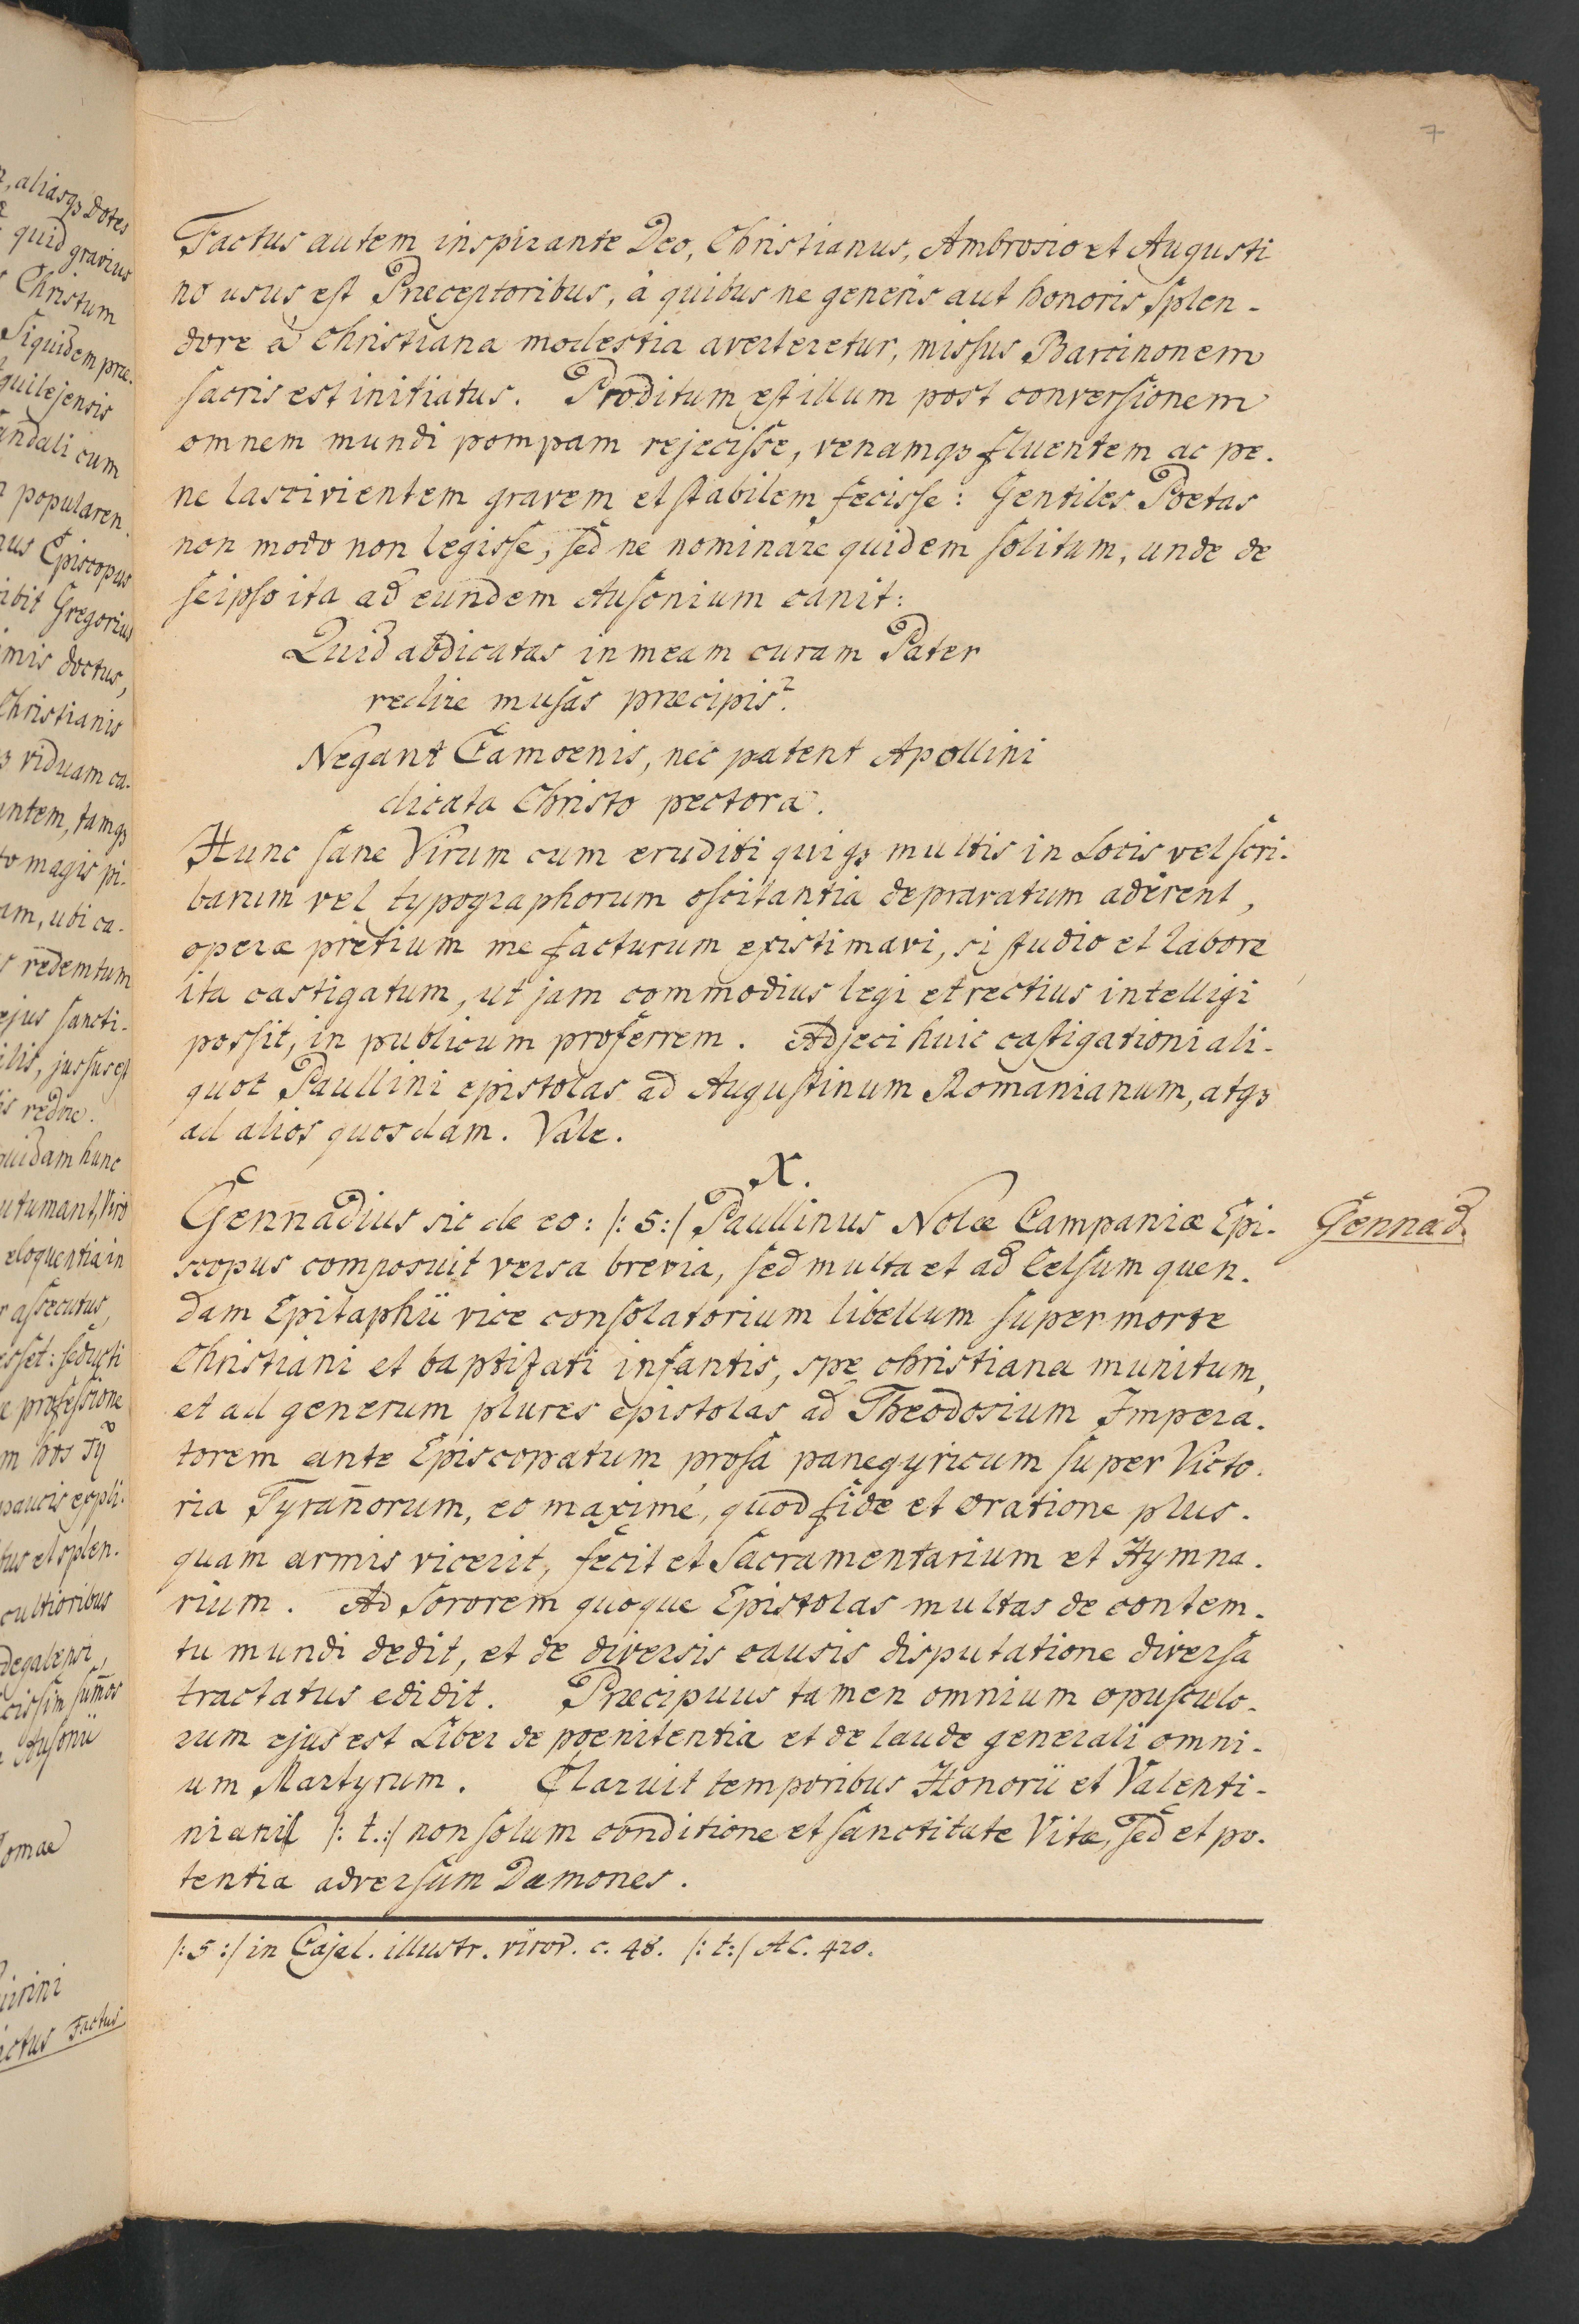 7
Factus autem inspirante Deo, Christianus, Ambrosio et Augusti
no usus est Præceptoribus, à quibus ne generis aut honoris splen-
dore à Christiana modestia averteretur, missus Barcinonem
sacris est initiatus. Proditum est illum post conversionem
omnem mundi pompam rejecisse, venamqꝫ fluentem ac pe-
ne lascivientem gravem et stabilem fecisse: Gentiles Poetas
non modo non legisse, sed ne nominare quidem solitum, unde de
seipso ita ad eundem Ausonium canit:
Quid abdicatas in meam curam Pater
redire musas præcipis?
Negant Camoenis, nec patent Apollini
dicata Christo pectora.
Hunc sane Virum cum eruditi quiqꝫ multis in Locis vel scri-
barum vel typographorum oscitantia depravatum aderent,
operæ pretium me facturum existimavi, si studio et labore
ita castigatum, ut jam commodius legi et rectius intelligi
possit, in publicum proferrem. Adjeci huic castigationi ali-
quot Paullini epistolas ad Augustinum Romanianum, atqꝫ
ad alios quosdam. Vale.
X.
Gennadius sic de eo: /: s :/ Paullinus Nolæ Campaniæ Epi-
scopus composuit versa brevia, sed multa et ad Celsum quen-
dam Epitaphii vice consolatorium libellum super morte
Christiani et baptizati infantis, spe christiana munitum,
et ad generum plures epistolas ad Theodosium Impera-
torem ante Episcopatum prosa panegyricum super Victo-
ria Tyrañorum, eo maximé, quod fide et oratione plus-
quam armis vicerit, fecit et Sacramentarium et Hymna-
rium. Ad Sororem quoque Epistolas multas de contem-
tu mundi dedit, et de diversis causis disputatione diversa
tractatus edidit. Præcipuus tamen omnium opusculo-
rum ejus est Liber de poenitentia et de laude generali omni-
um Martyrum. Claruit temporibus Honorii et Valenti-
niani /: t. :/ non solum conditione et sanctitate Vitæ, sed et po-
tentia adversum Dæmones.
Gennad.
/: s :/ in Cajal. illustr. viror. c. 48. /: t :/ A C. 420.